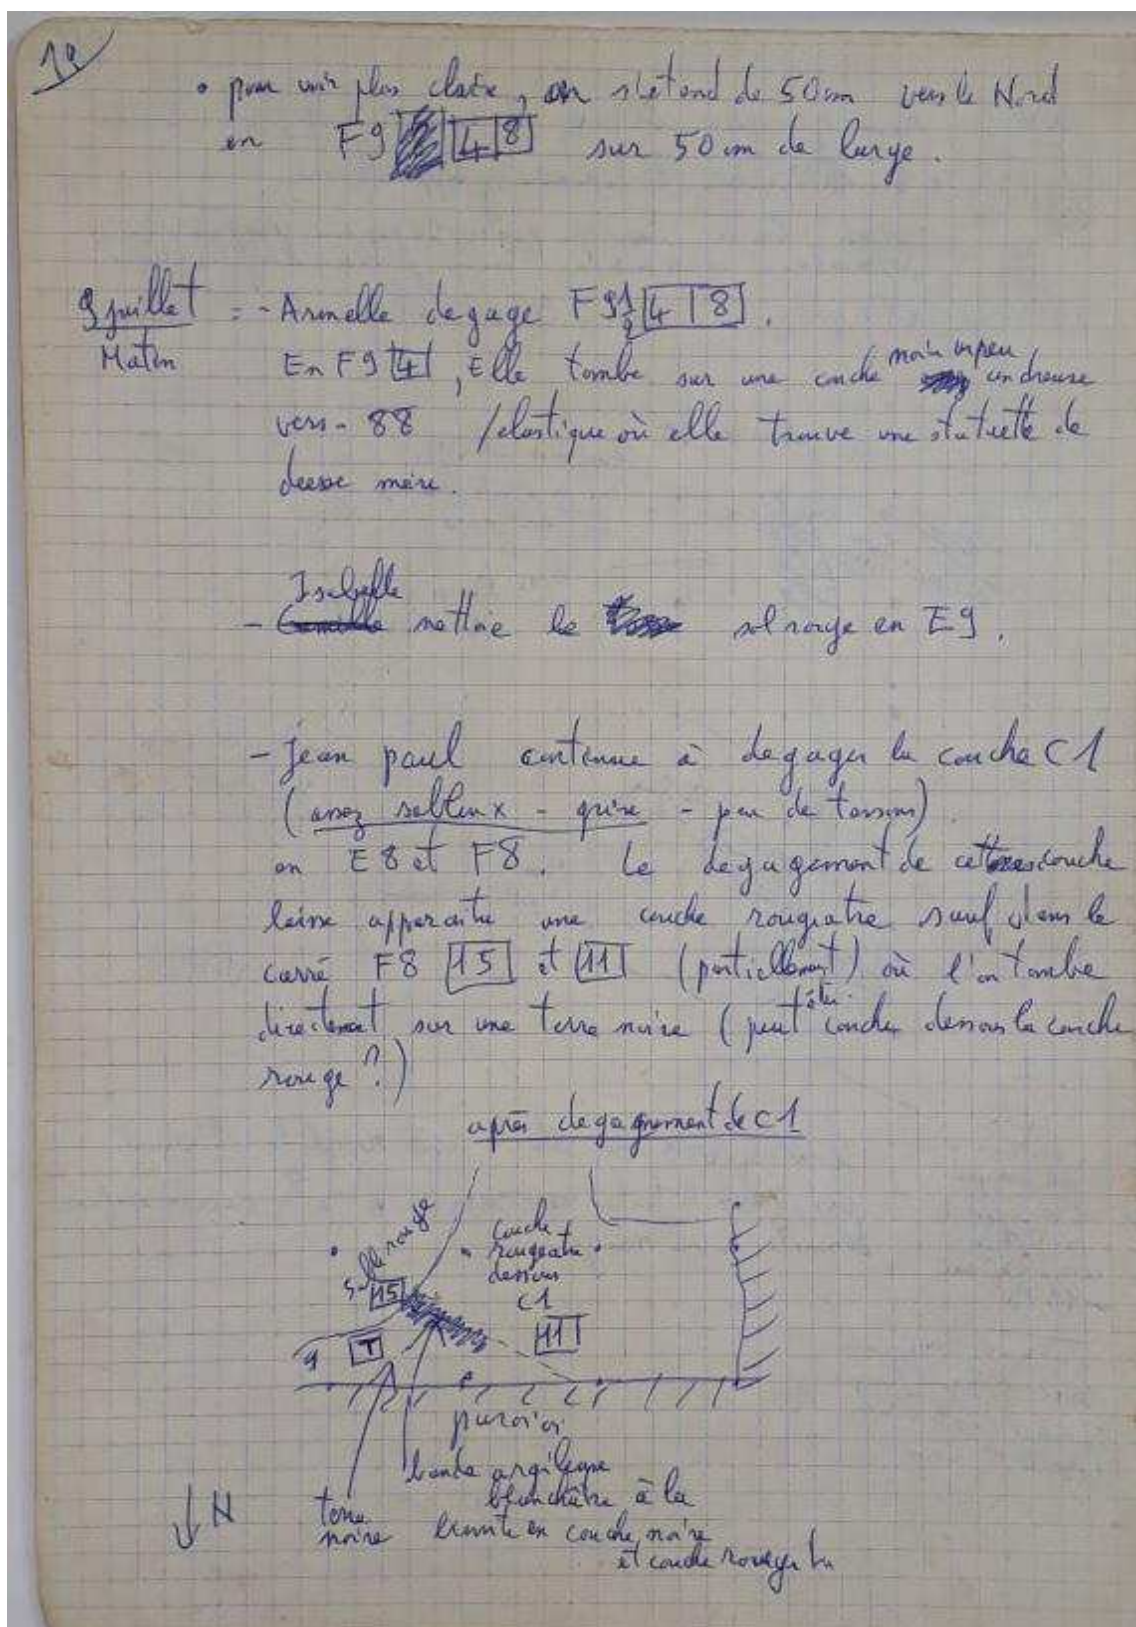 19
• pour voir plus claire, on s'etend de 50 cm vers le Nord
en F9 4 8 sur 50 cm de large.
9 juillet = - Armelle degage F9 1/2 4 8.
Matin En F9 4, Elle tombe sur une couche noire un peu cendreuse
vers - 88 / elastique où elle trouve une statuette de
deesse mère.
Isabelle
- nettoie le sol rouge en E9.
- Jean paul continue à degager la couche C1
(assez sableux - grise - peu de tessons)
en E8 et F8. Le degagement de cette couche
laisse apparaitre une couche rougeatre sauf dans le
carré F8 15 et 11 (partiellement) où l'on tombe
directement sur une terre noire (peut être couche dessous la couche
rouge ?)
après degagnement de C1
salle rouge
couche
rougeatre
dessous
C1
15
11
T
9
paroi
bande argileuse
blanchâtre à la
limite en couche noire
et couche rougeatre
terre
noire
N